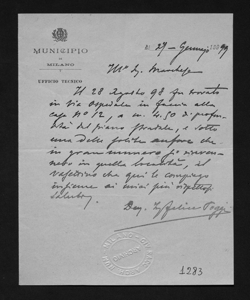 MUNICIPIO
DI
MILANO
UFFICIO TECNICO
27 - Gennajo 99
Ill.o Sig. Marchese
Il 28 Agosto 98 fu trovato
in via Ospedale in faccia alla
casa N° 12, a m. 4.50 di profon-
dità del piano stradale, e sotto
una delle solite anfore che
in gran numero si rinven-
nero in quella località, il
vasettino che qui le compiego
insieme ai miei più rispettosi
saluti
Dev. Felice Poggi
1283